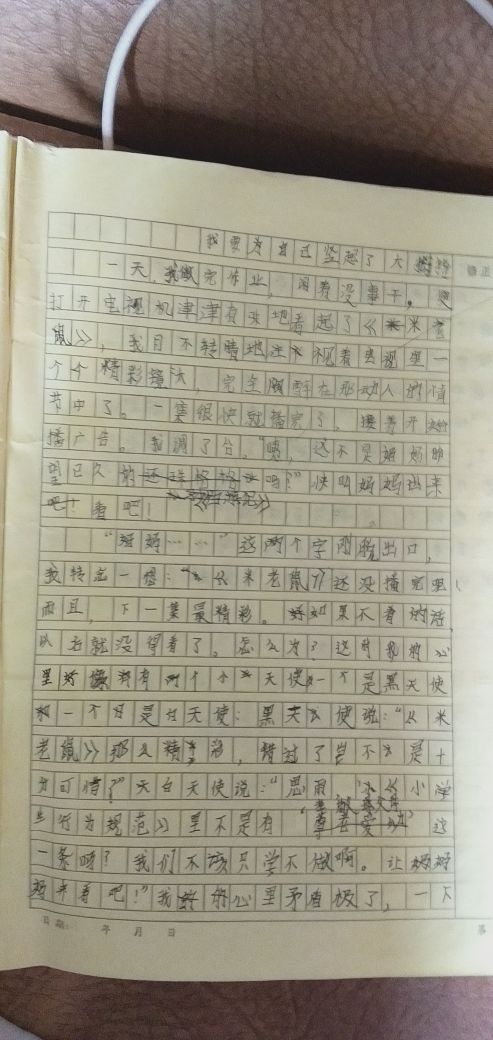 我要为自己竖起了大
一天,我做完作业,闲着没事干。
打开电视机津津有味地看起了《米老
鼠》,我目不转睛地注视着电视里一
个个精彩镜头,完全陶醉在那动人的情
节中了。一集很快就播完了,接着开始
播广告。我调了台。"嗯,这不是妈妈盼
望已久的还珠格格吗?"快叫妈妈出来
吧!看吧!
"妈妈……"这两个字刚脱出口,
我转念一想:"《米老鼠》还没播完呢!
而且,下一集最精彩。如果不看的话,
以后就没得看了。怎么办?这时我的心
里好像有两个小天使一个是黑天使
和一个是白天使:黑天使说:"《米
老鼠》那么精彩,错过了岂不是十
分可惜?"白天使说:"思雨,《小学
生行为规范》里不是有 尊老爱幼 这
一条吗?我们不该只学不做啊。让妈妈
来看吧!"我的心里矛盾极了,一下
日期: 年 月 日
第